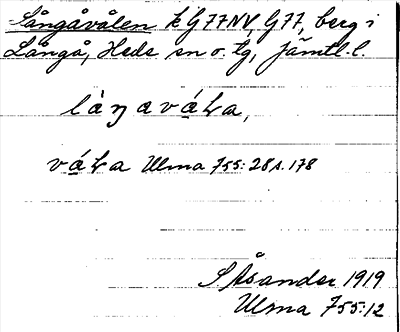 Långåvålen k G77NV, G77, berg i
Långå, Heds sn o. tg, Jämtl. l.
låŋavåɫa,
våɫa Ulma 755:28 s. 178
S Åsander 1919
Ulma 755:12